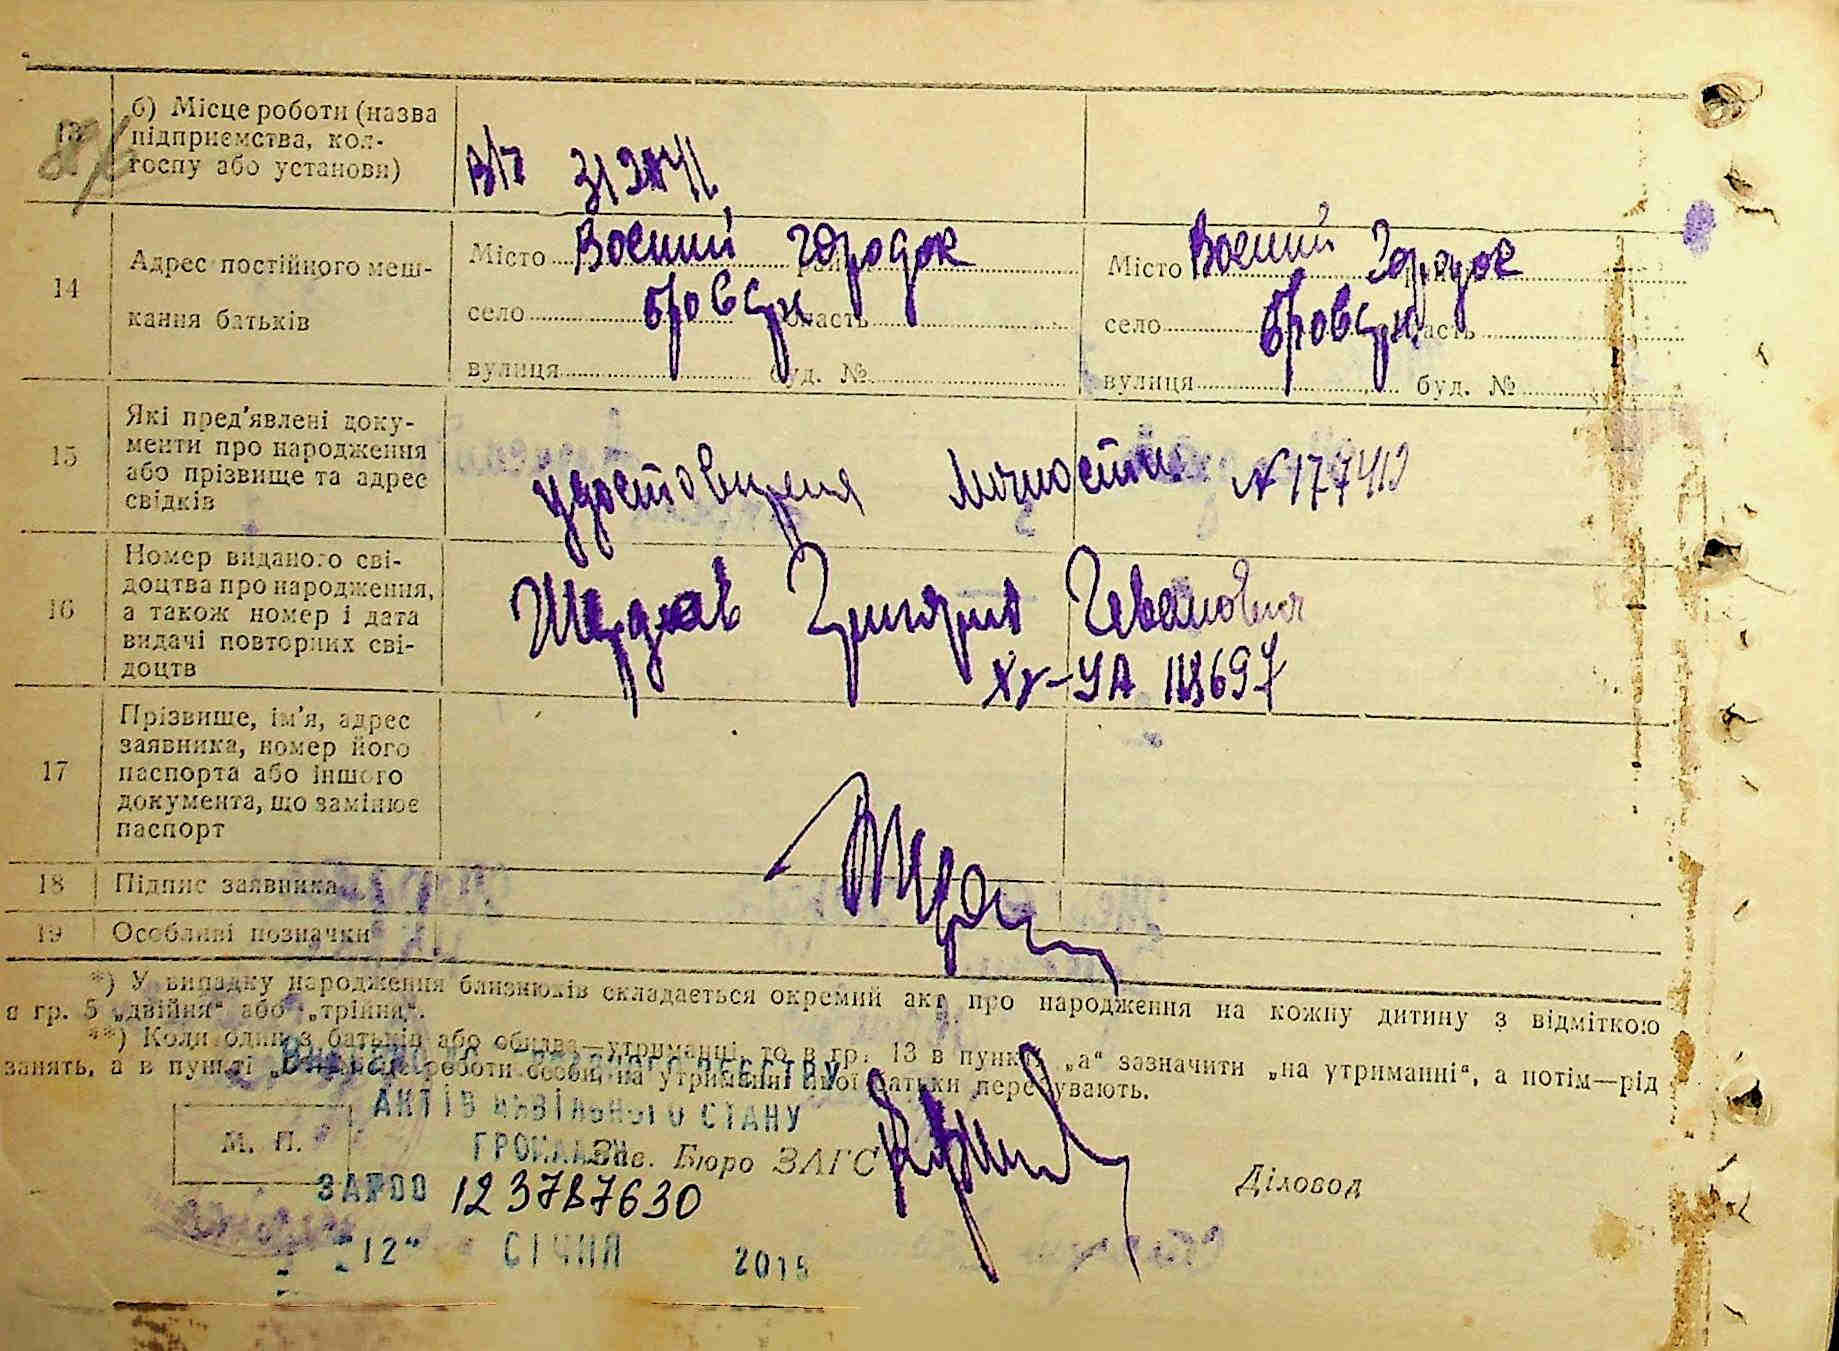 13
б) Місце роботи (назва
підприємства, кол-
госпу або установи)
14
Адрес постійного меш-
кання батьків
Місто Воєний городок
село бровари область
вулиця буд. №
Місто Воєний Городок
село бровари область
вулиця буд. №
15
Які пред'явлені доку-
менти про народження
або прізвище та адрес
свідків
личности №
16
Номер виданого сві-
доцтва про народження,
а також номер і дата
видачі повторних сві-
доцтв
Григорий
УА
17
Прізвище, ім'я, адрес
заявника, номер його
паспорта або іншого
документа, що замінює
паспорт
18 Підпис заявника
19 Особливі позначки
*) У випадку народження близнюків складається окремий акт про народження на кожну дитину з відміткою
в гр. 5 „двійня“ або „трійня“.
**) Коли один з батьків або обидва—утриманці, то в гр. 13 в пункті „а“ зазначити „на утриманні“, а потім—рід
занять, а в пункті роботи особи, на утриманні якої батьки перебувають.
реєстру
АКТІВ ЦИВІЛЬНОГО СТАНУ
ГРОМАДЯН
М. П.
Зав. Бюро ЗАГС
Діловод
ЗА №00 123787630
"12" СІЧНЯ 2015